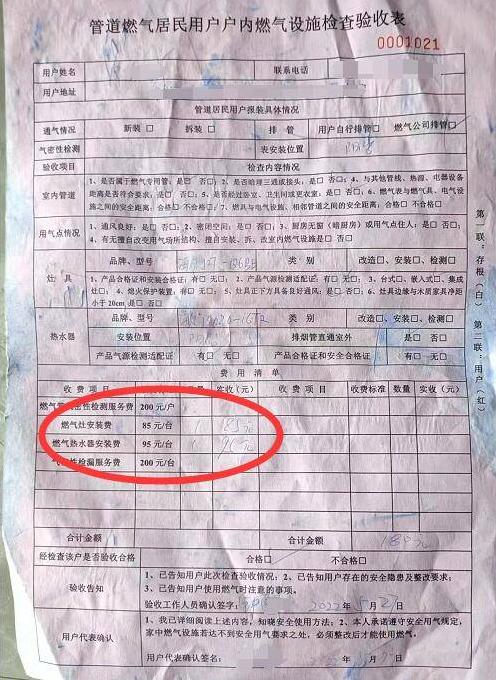 管道燃气居民用户户内燃气设施检查验收表
0001021
用户姓名 联系电话
用户地址
管道居民用户报装具体情况
通气情况 新装□ 拆装□ 排管 用户自行排管□ 燃气公司排管□
气密性检测 表安装位置 阳台
验收项目 检查内容情况
室内管道
1、是否属于燃气专用管：是□ 否□；2、是否暗埋三通或接头：是□ 否□；4、与其他管线、热源、电器设备
距离是否符合要求：是□ 否□；5、是否经过卧室、卫生间或更衣室：是□ 否□；6、燃气表与燃气具、电气设
施之间的安全距离：合格□ 不合格□；7、燃具与电气设施、相邻管道之间的安全距离：合格□ 不合格□
用气点情况
1、通风良好：是□ 否□；2、密闭空间：是□ 否□；3、厨房无窗（暗厨房）或用气点住人：是□ 否□；
4、有无擅自改变用气场所结构、擅自安装、拆、改室内燃气设施是□ 否□
灶具
品牌、型号 类别 改造□、安装□、检测□
1、产品合格证和安装合格证：有□ 无□；2、产品气源检测适配证：有□ 无□；3、台式□、嵌入式□、集成
灶□；4、熄火保护装置：有□ 无□；5、灶具正下方具备良好通风：是□ 否□；6、灶具边缘与木质家具净距
小于20cm 是□ 否□
热水器
品牌、型号 类别 改造□、安装□、检测□
安装位置 排烟管直通室外 是□ 否□
产品气源检测适配证 有□ 无□ 产品合格证和安全合格证 有□ 无□
费用清单
收费项目 实收（元） 收费项目 收费标准 数量 实收（元）
密性检测服务费 200元/户
燃气灶安装费 85元/台 1 85元
燃气热水器安装费 95元/台 1 95元
性检漏服务费 200元/台
合计金额 合计金额
经检查该户是否验收合格 合格□ 不合格□
验收告知
1、已告知用户此次检查验收情况；2、已告知用户存在的安全隐患及整改要求；
3、已告知用户使用燃气时注意的事项。
验收工作人员确认签字： 2022年5月27日
用户代表确认
1、我已详细阅读上述内容，知晓安全使用方法；2、本人承诺遵守安全用气规定，
家中燃气设施若达不到安全用气要求之处，必须整改后才能使用燃气。
用户代表确认签名： 年 月 日
第一联：存根（白） 第二联：用户（红）